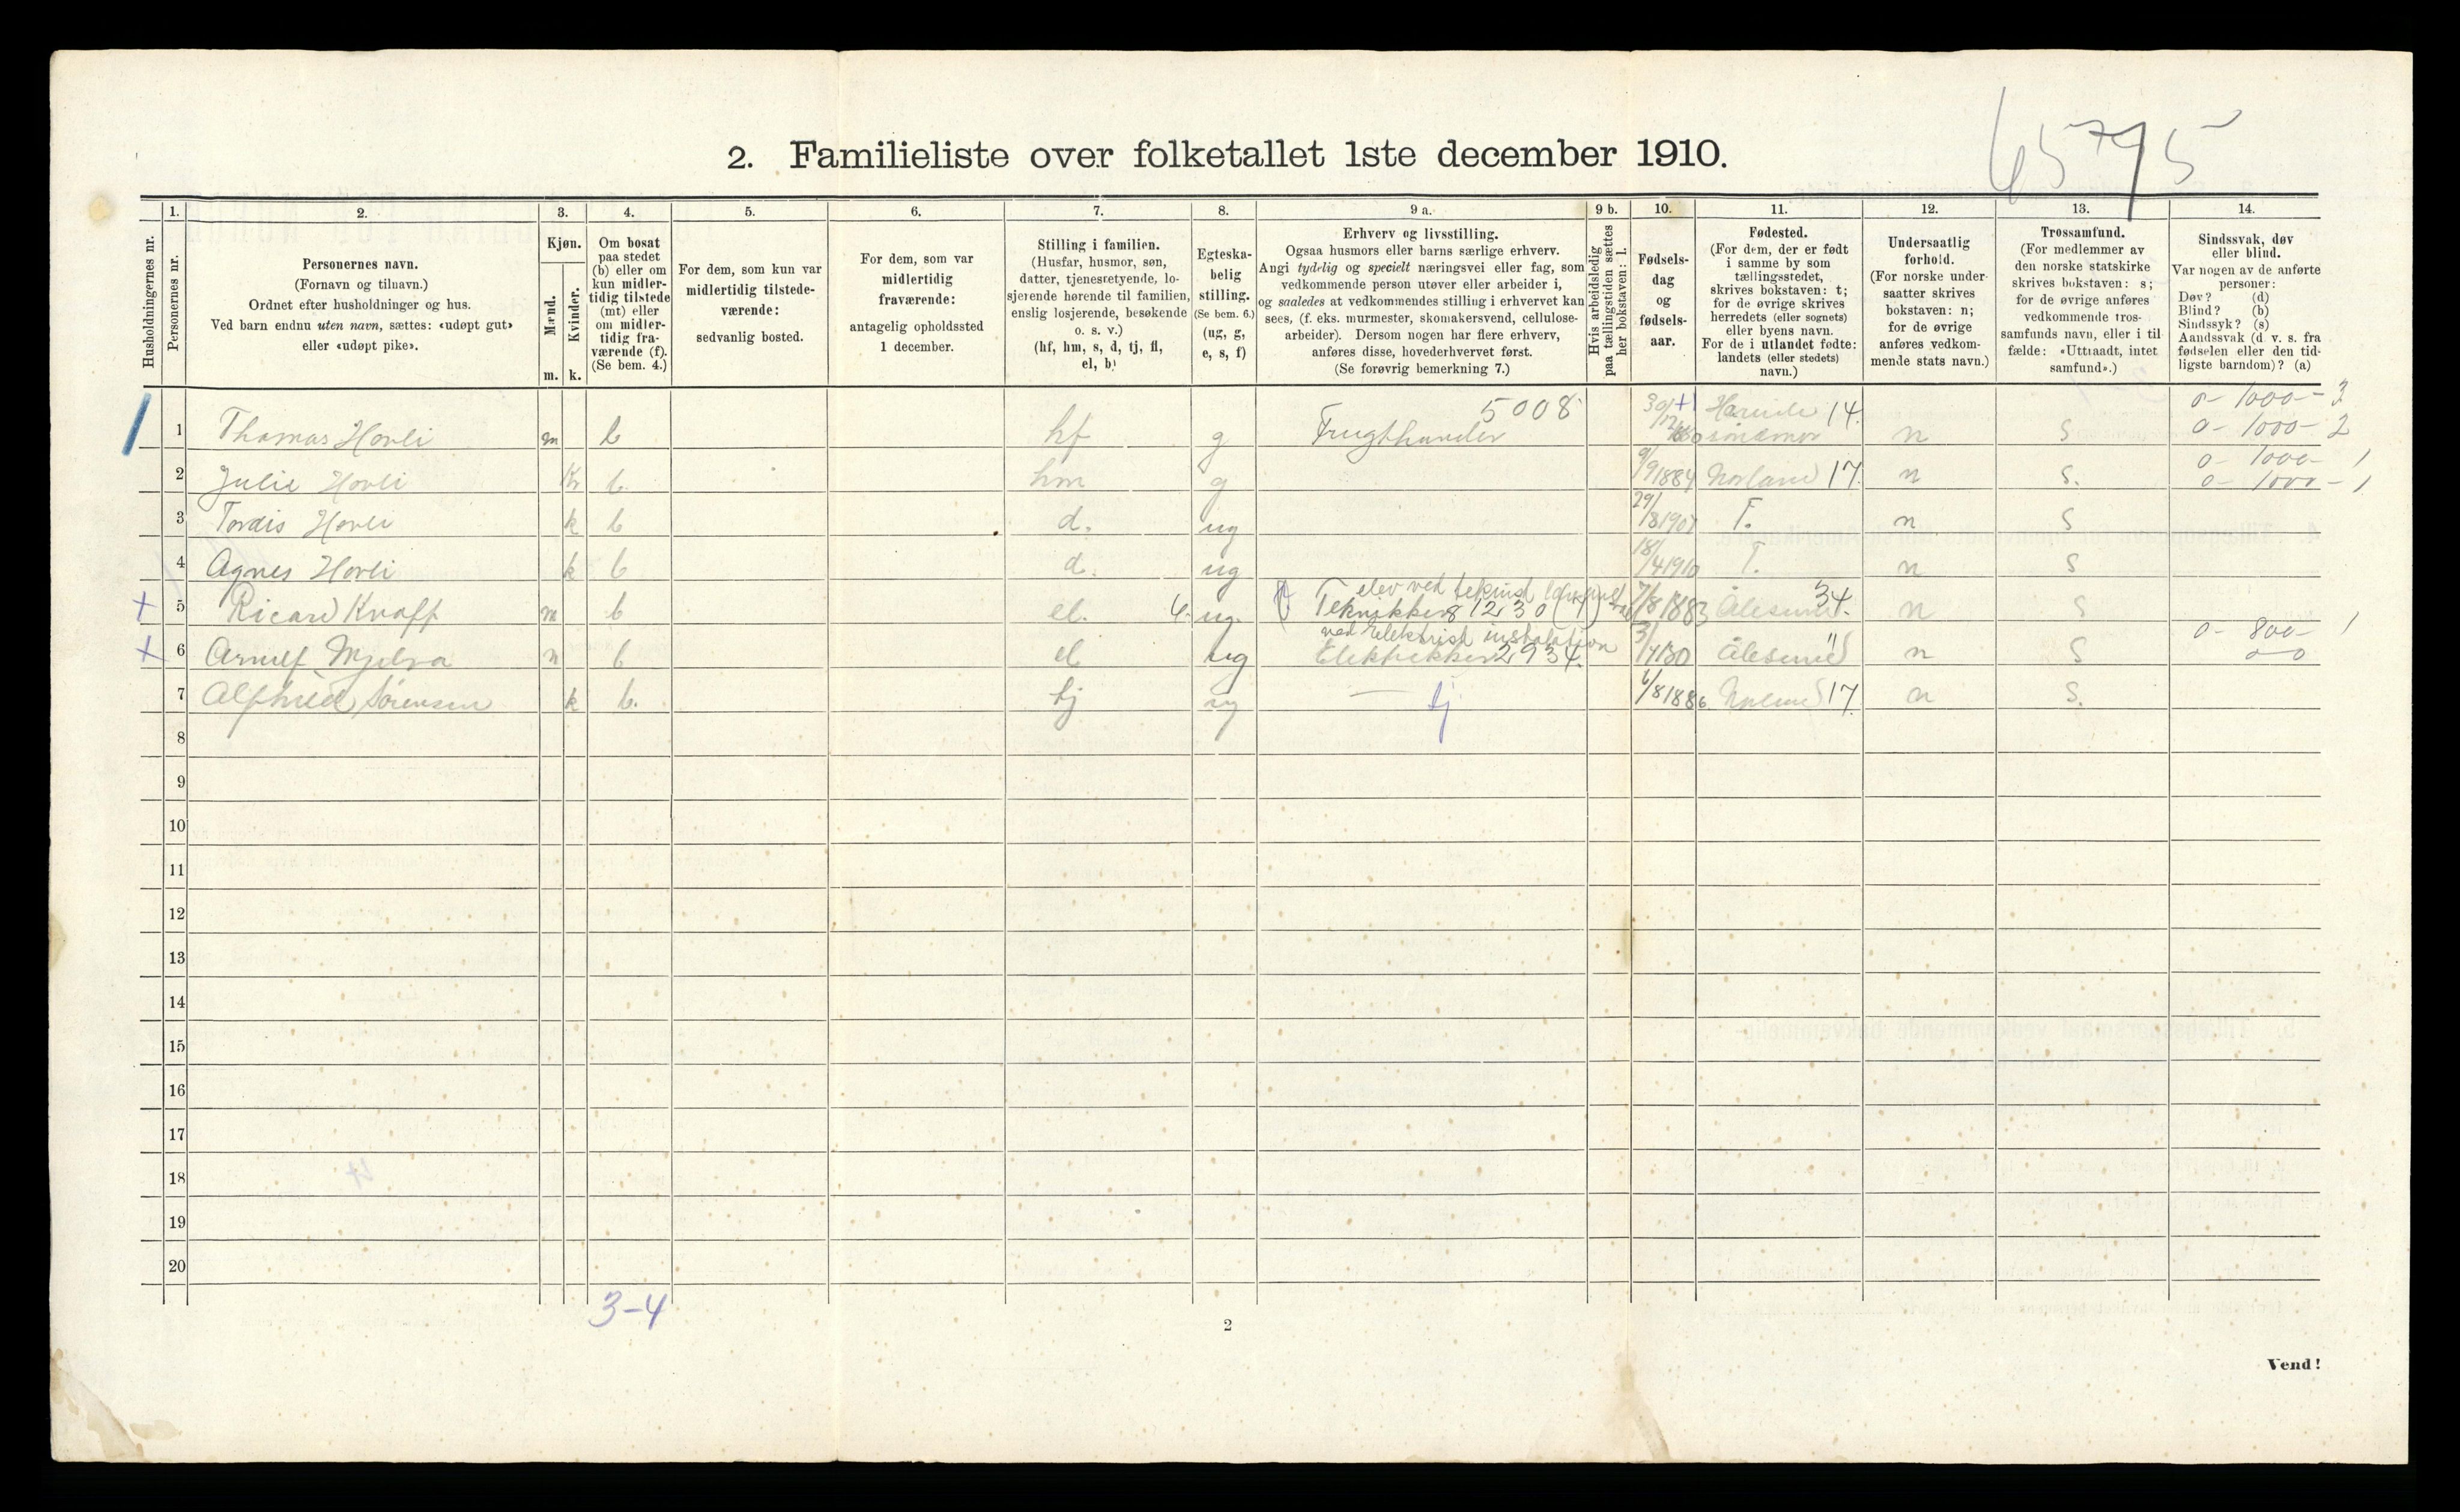 65795
2. Familieliste over folketallet 1ste december 1910.
Husholdningernes nr.
1.
Personernes nr.
2.
Personernes navn.
(Fornavn og tilnavn.)
Ordnet efter husholdninger og hus.
Ved barn endnu uten navn, sættes: «udøpt gut»
eller «udøpt pike».
3.
Kjøn.
Mænd.
m.
Kvinder.
k.
4.
Om bosat
paa stedet
(b) eller om
kun midler-
tidig tilstede
(mt) eller
om midler-
tidig fra-
værende (f).
(Se bem. 4.)
5.
For dem, som kun var
midlertidig tilstede-
værende:
sedvanlig bosted.
6.
For dem, som var
midlertidig
fraværende:
antagelig opholdssted
1 december.
7.
Stilling i familien.
(Husfar, husmor, søn,
datter, tjenestetyende, lo-
sjerende hørende til familien,
enslig losjerende, besøkende
o. s. v.)
(hf, hm, s, d, tj, fl,
el, b)
8.
Egteska-
belig
stilling.
(Se bem. 6.)
(ug, g,
e, s, f)
9 a.
Erhverv og livsstilling.
Ogsaa husmors eller barns særlige erhverv.
Angi tydelig og specielt næringsvei eller fag, som
vedkommende person utøver eller arbeider i,
og saaledes at vedkommendes stilling i erhvervet kan
sees, (f. eks. murmester, skomakersvend, cellulose-
arbeider). Dersom nogen har flere erhverv,
anføres disse, hovederhvervet først.
(Se forøvrig bemerkning 7.)
9 b.
Hvis arbeidsledig
paa tællingstiden sættes
her bokstaven: l.
10.
Fødsels-
dag
og
fødsels-
aar.
11.
Fødested.
(For dem, der er født
i samme by som
tællingsstedet,
skrives bokstaven: t;
for de øvrige skrives
herredets (eller sognets)
eller byens navn.
For de i utlandet fødte:
landets (eller stedets)
navn.)
12.
Undersaatlig
forhold.
(For norske under-
saatter skrives
bokstaven: n;
for de øvrige
anføres vedkom-
mende stats navn.)
13.
Trossamfund.
(For medlemmer av
den norske statskirke
skrives bokstaven: s;
for de øvrige anføres
vedkommende tros-
samfunds navn, eller i til-
fælde: «Uttraadt, intet
samfund».)
14.
Sindssvak, døv
eller blind.
Var nogen av de anførte
personer:
Døv? (d)
Blind? (b)
Sindssyk? (s)
Aandssvak (d. v. s. fra
fødselen eller den tid-
ligste barndom)? (a)
5008 0- 1000- 3
1 Thomas Hovli m b hf g 30/12 14. n s 0- 1000- 2
0- 1000- 1
2 Julie Hovli k b g hm 9/9 1884 Norland 17. n s. 0- 1000- 1
3 Tordis Hovli k b d. ug 29/8 1907 T. n s
4 Agnes Hovli k b d. ug 18/4 1910 T. n s
elev ved
+ 5 Ricard Knaff m b el. 4. ug. Teknikker 81230 7/8 1883 Ålesund 34. n s
ved Elektrisk instalation 0- 800- 1
+ 6 Arnulf m b el ug Elektrikker 2934. Ålesund " n s
7 Sørensen k b. tj ug — tj 6/8 1886 17. n s.
8
9
10
11
12
13
14
15
16
17
18
19
20
3-4
2
Vend!